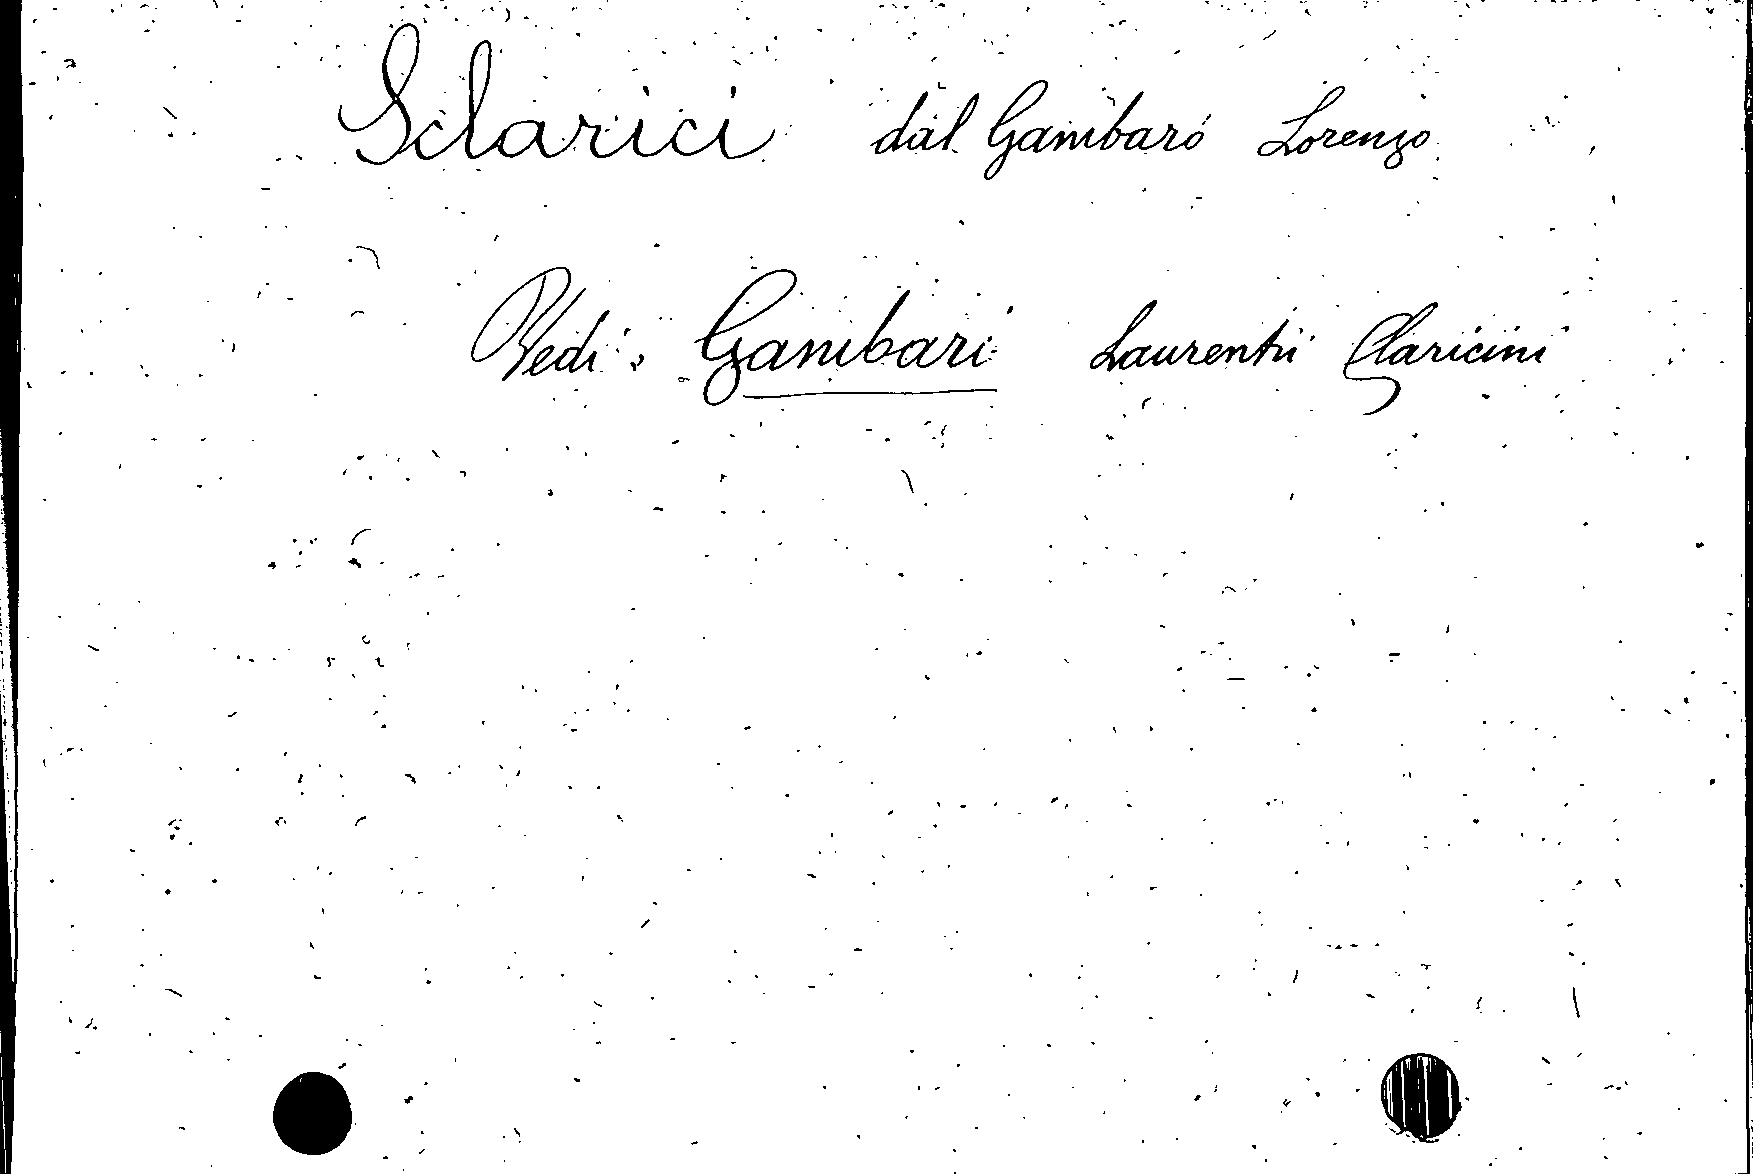 Sclarici dal Gambaró Lorenzo
Vedi: Gambari Laurentii Claricini